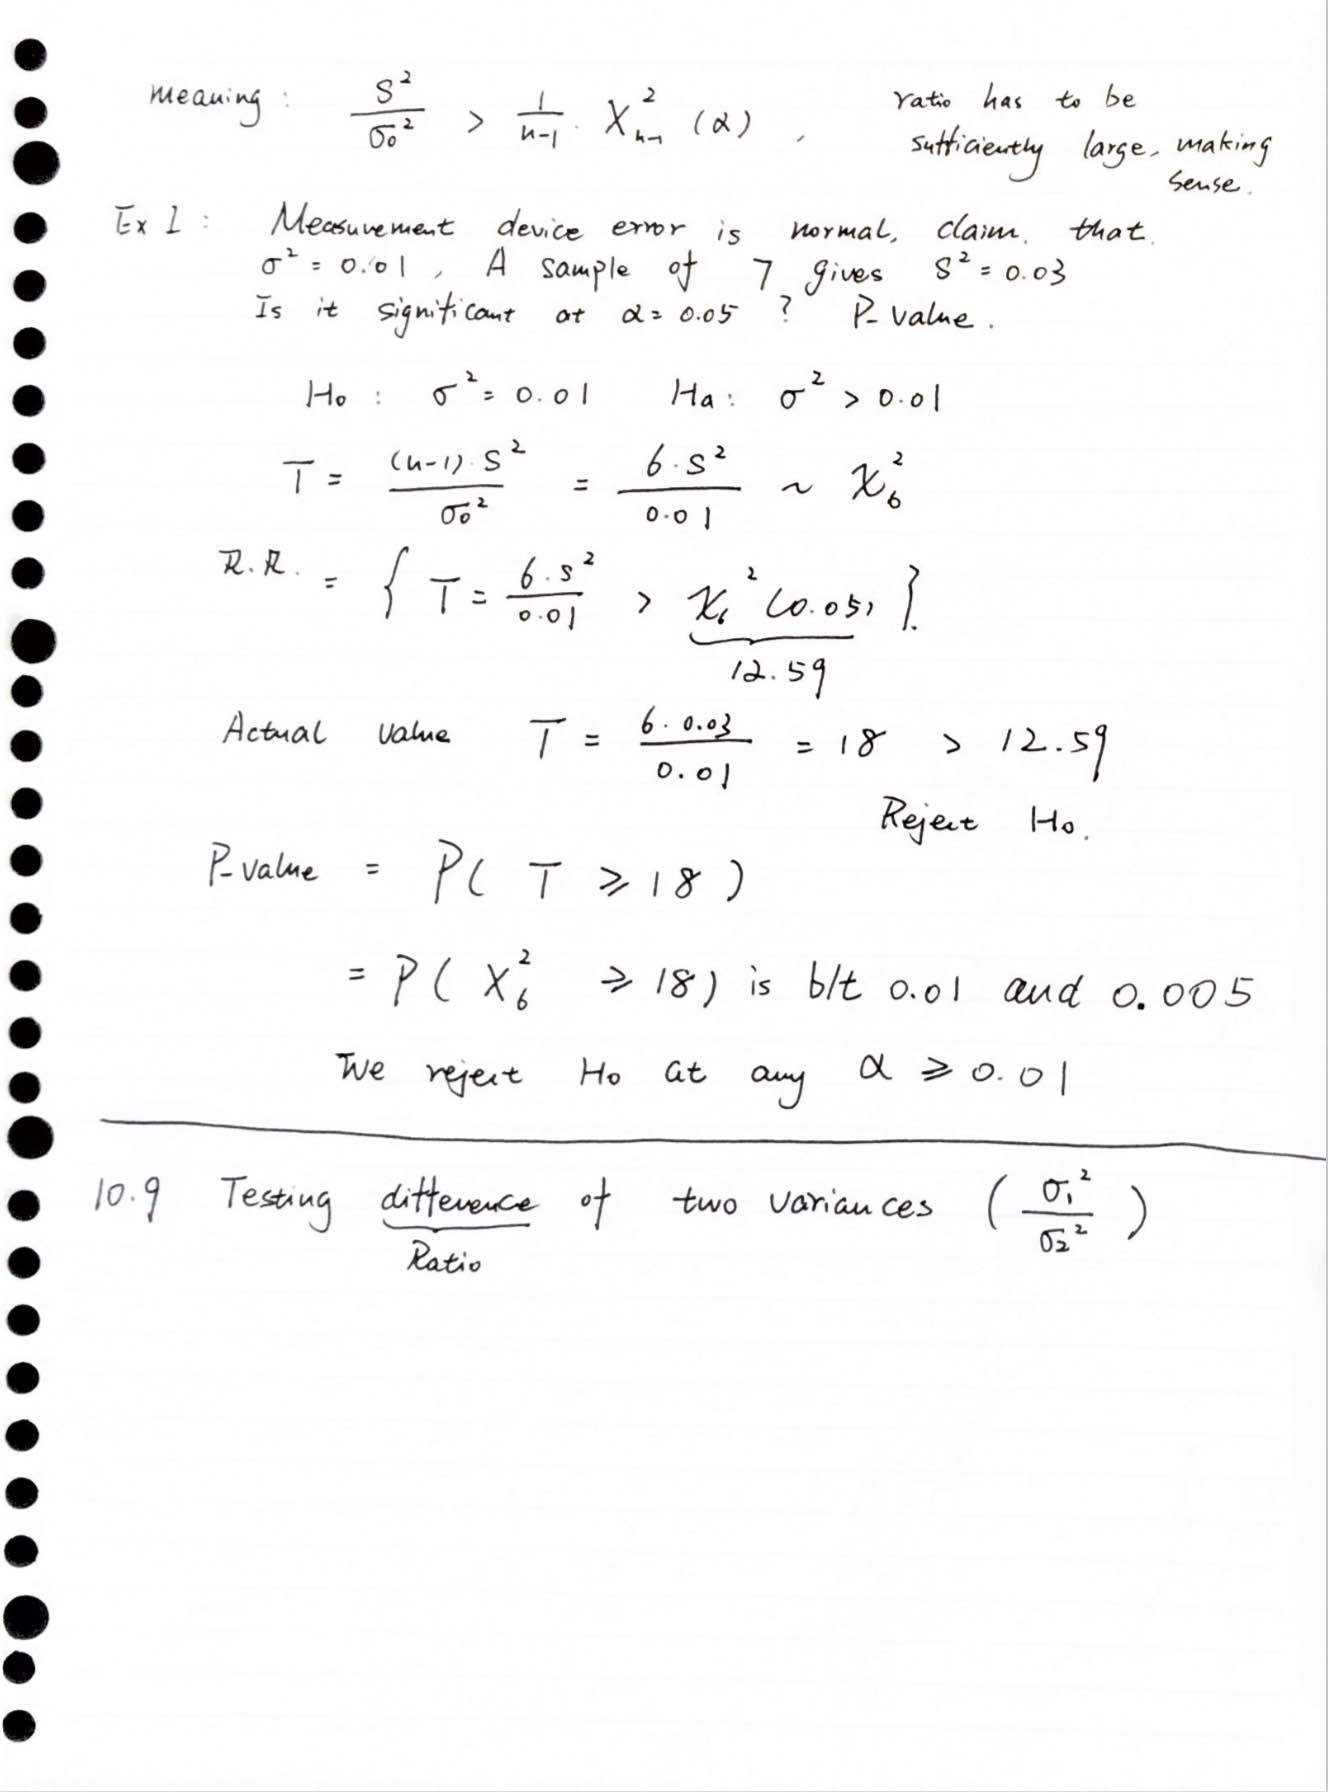 meaning : S²/σ₀² > 1/(n-1) · X²ₙ₋₁ (α) , ratio has to be
sufficiently large, making
sense.
Ex 1 : Measurement device error is normal, claim that
σ² = 0.01 , A sample of 7 gives S² = 0.03
Is it significant at α = 0.05 ? P-value .
H₀ : σ² = 0.01 Ha : σ² > 0.01
T = (n-1)·S²/σ₀² = 6·S²/0.01 ~ χ₆²
R.R. = { T = 6·S²/0.01 > χ₆² (0.05) }.
12.59
Actual value T = 6·0.03/0.01 = 18 > 12.59
Reject H₀.
P-value = P( T ≥ 18 )
= P( X₆² ≥ 18) is b/t 0.01 and 0.005
We reject H₀ at any α ≥ 0.01
10.9 Testing difference of two variances ( σ₁²/σ₂² )
Ratio